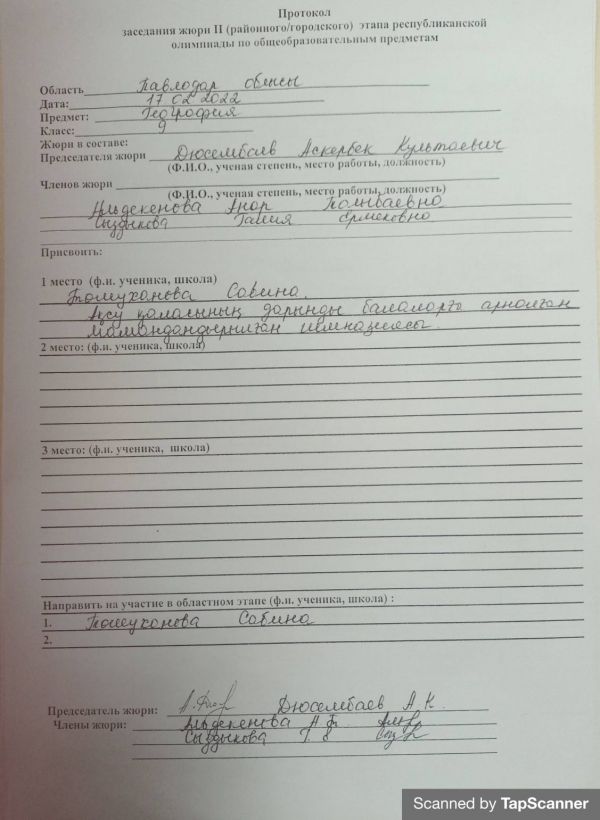 Протокол
заседания жюри II (районного/городского) этапа республиканской
олимпиады по общеобразовательным предметам
Область Павлодар облысы
Дата: 17 02 2022
Предмет: География
Класс: 9
Жюри в составе:
Председателя жюри Дюсембаев Аскербек Культаевич
(Ф.И.О., ученая степень, место работы, должность)
Членов жюри
(Ф.И.О., ученая степень, место работы, должность)
Альдекенова Анар
Сыздыкова Ермековна
Присвоить:
1 место (ф.и. ученика, школа)
Сабина
Ақсу қаласының дарынды балаларға арналған
мамандандырылған гимназиясы.
2 место: (ф.и. ученика, школа)
3 место: (ф.и. ученика, школа)
Направить на участие в областном этапе (ф.и. ученика, школа) :
1. Сабина
2.
Председатель жюри: Дюсембаев А.К.
Члены жюри: Альдекенова А Б
Сыздыкова Г. Е
Scanned by TapScanner